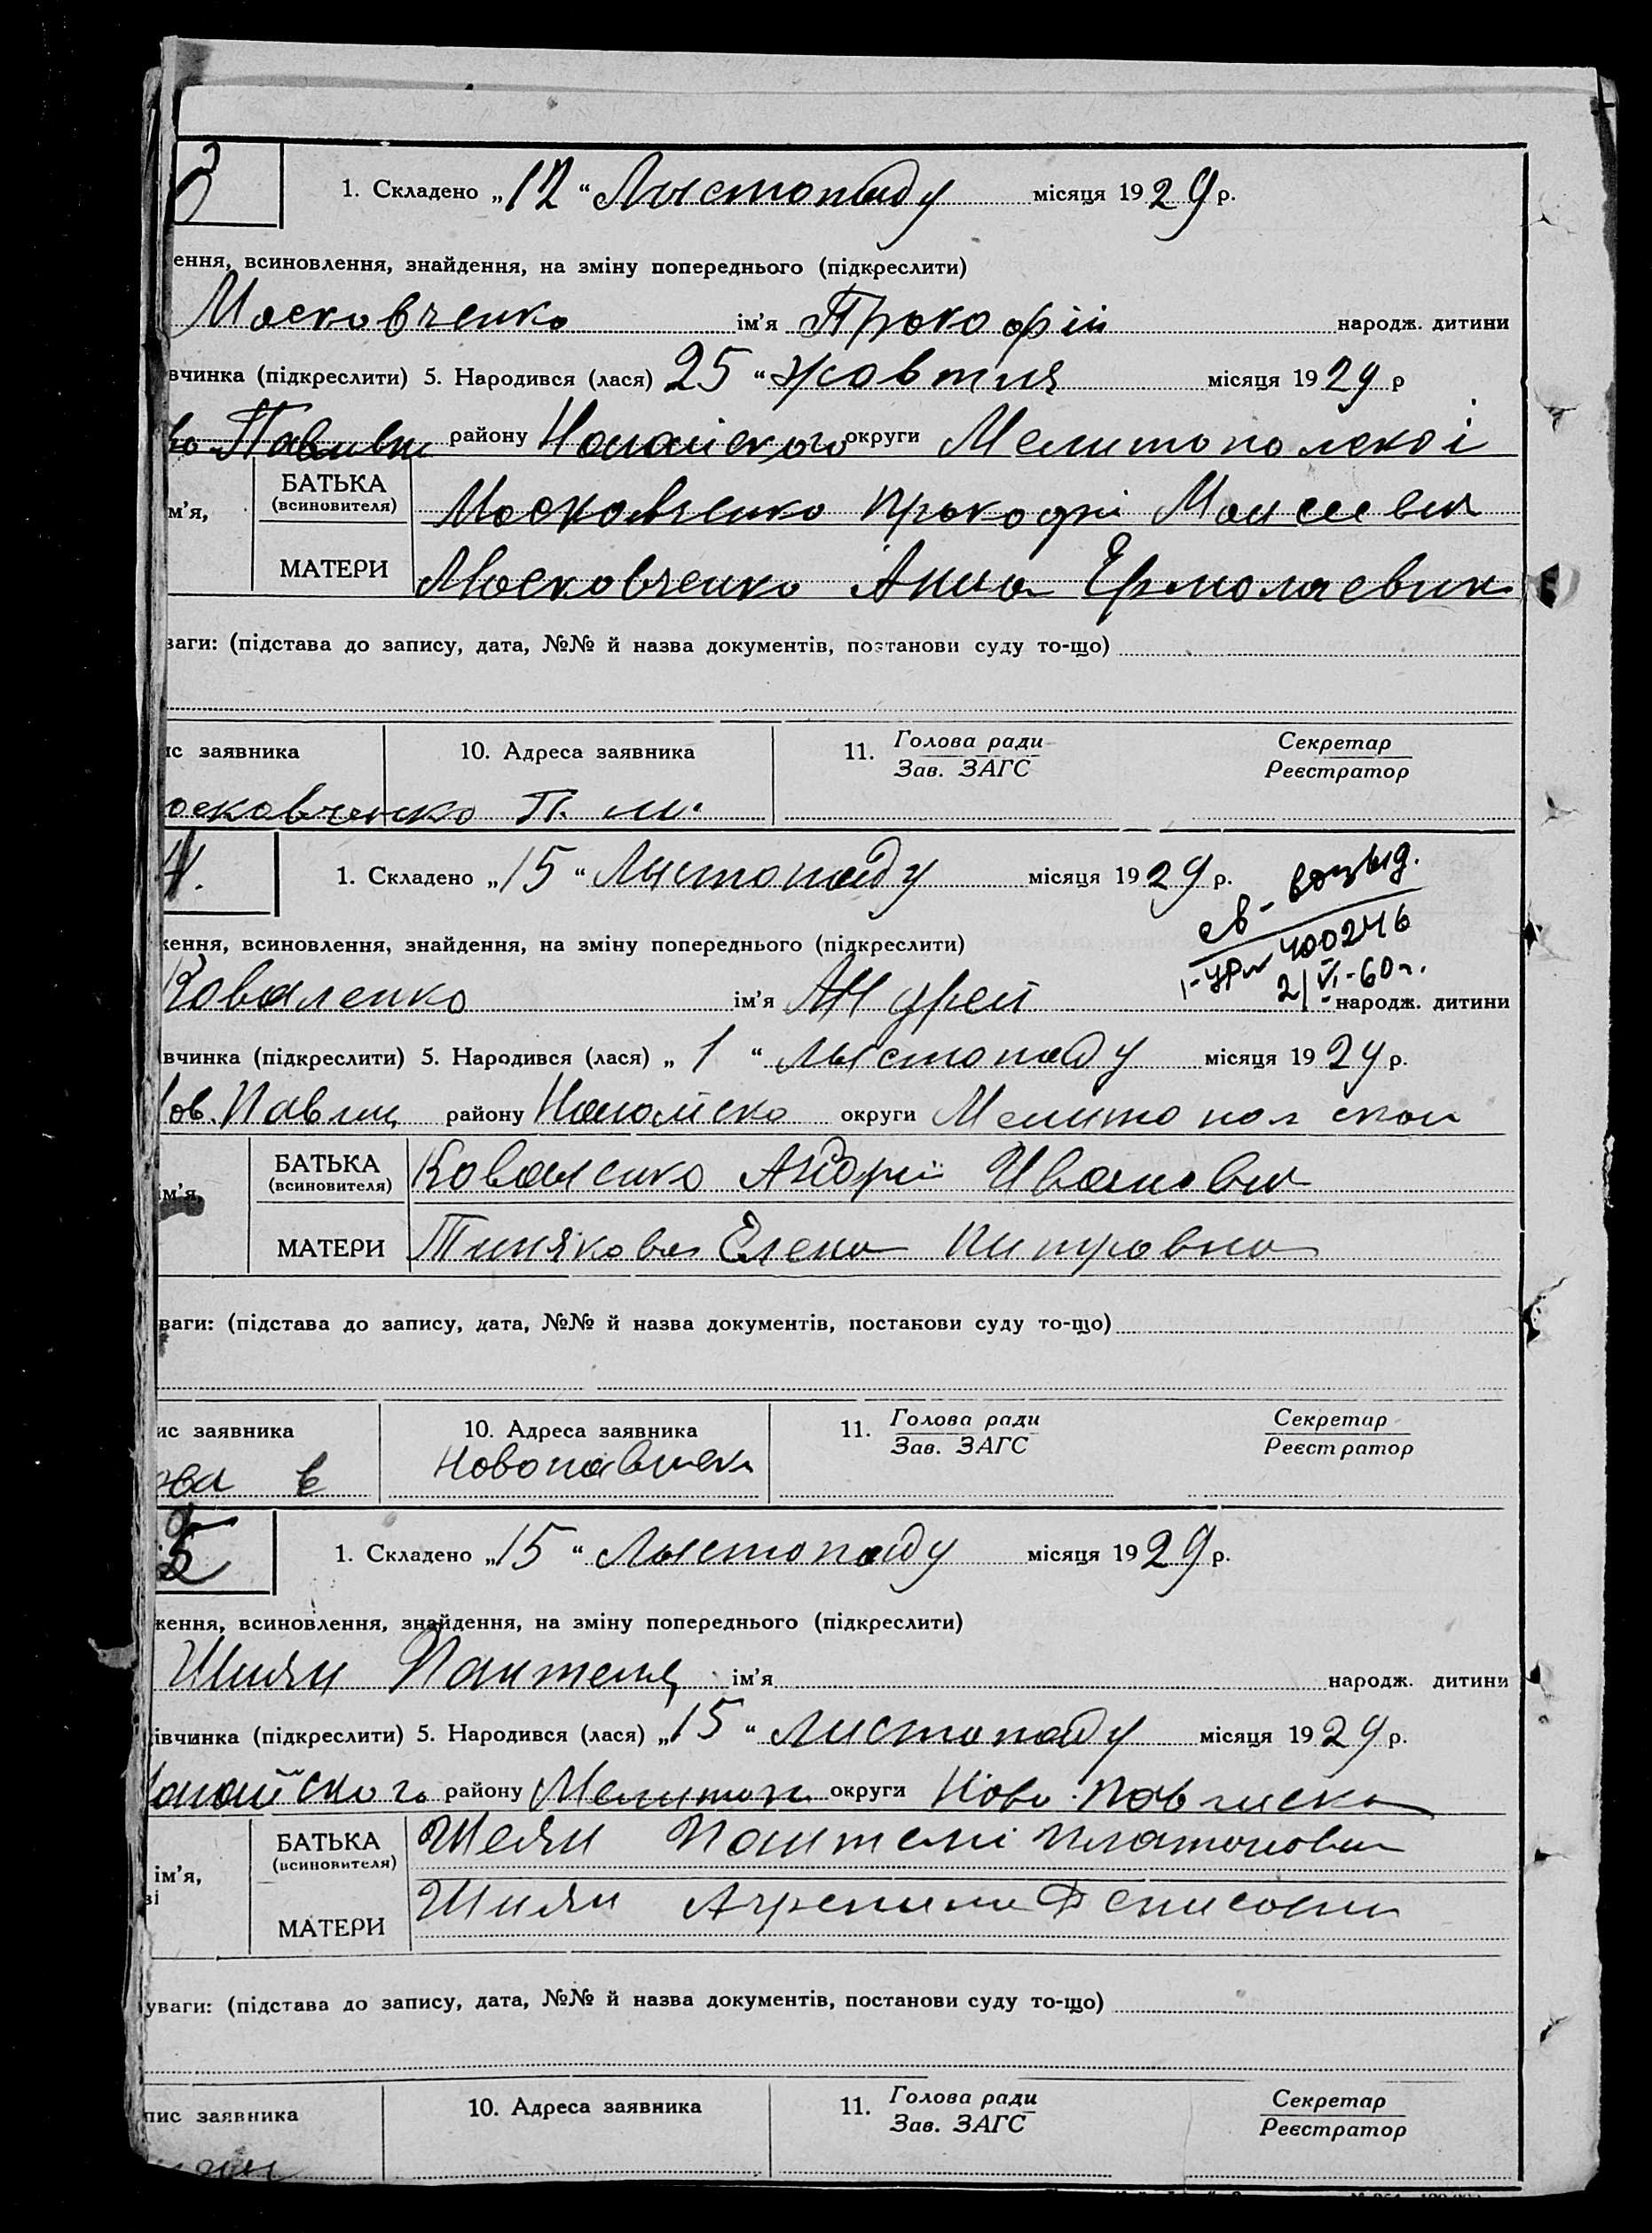 1. Складено „12“ Лыстопаду місяця 1929 р.
ення, всиновлення, знайдення, на зміну попереднього (підкреслити)
Московченко ім’я Прокофій народж. дитини
вчинка (підкреслити) 5. Народився (лася) 25 “ жовтня місяця 1929 р
во Павлвк району Нагайского округи Мелитополскоі
м’я, БАТЬКА (всиновителя) Московченко Прокофі Моисеевич
МАТЕРИ Московченко Анна Ермолаевна
ваги: (підстава до запису, дата, №№ й назва документів, постанови суду то-що)
ис заявника 10. Адреса заявника 11. Голова ради Зав. ЗАГС Секретар Реєстратор
осковченко П. М.
4. 1. Складено „15“ Лыстопаду місяця 1929 р.
св-
I-УР 400246
2/VI-60г.
ження, всиновлення, знайдення, на зміну попереднього (підкреслити)
Коваленко ім’я народж. дитини
вчинка (підкреслити) 5. Народився (лася) „ 1 “ лыстопаду місяця 1929 р.
ов. Павлш району Нагайско округи Мелитополскои
ім’я, БАТЬКА (всиновителя) Коваленко Андрій Иванович
МАТЕРИ Тинякова Елена Питровна
ваги: (підстава до запису, дата, №№ й назва документів, постанови суду то-що)
ис заявника 10. Адреса заявника 11. Голова ради Зав. ЗАГС Секретар Реєстратор
ова Е Новопавлвск
5 1. Складено „15“ Лыстопаду місяця 1929 р.
ження, всиновлення, знайдення, на зміну попереднього (підкреслити)
Шиян Пантелей ім’я народж. дитини
івчинка (підкреслити) 5. Народився (лася) „15“ листопаду місяця 1929 р.
Нагайского району Мелитоп округи Ново-Павлвска
ім’я, ві БАТЬКА (всиновителя) Шеян Пантелі Платонович
МАТЕРИ Шиян Агрепина Денисовна
уваги: (підстава до запису, дата, №№ й назва документів, постанови суду то-що)
пис заявника 10. Адреса заявника 11. Голова ради Зав. ЗАГС Секретар Реєстратор